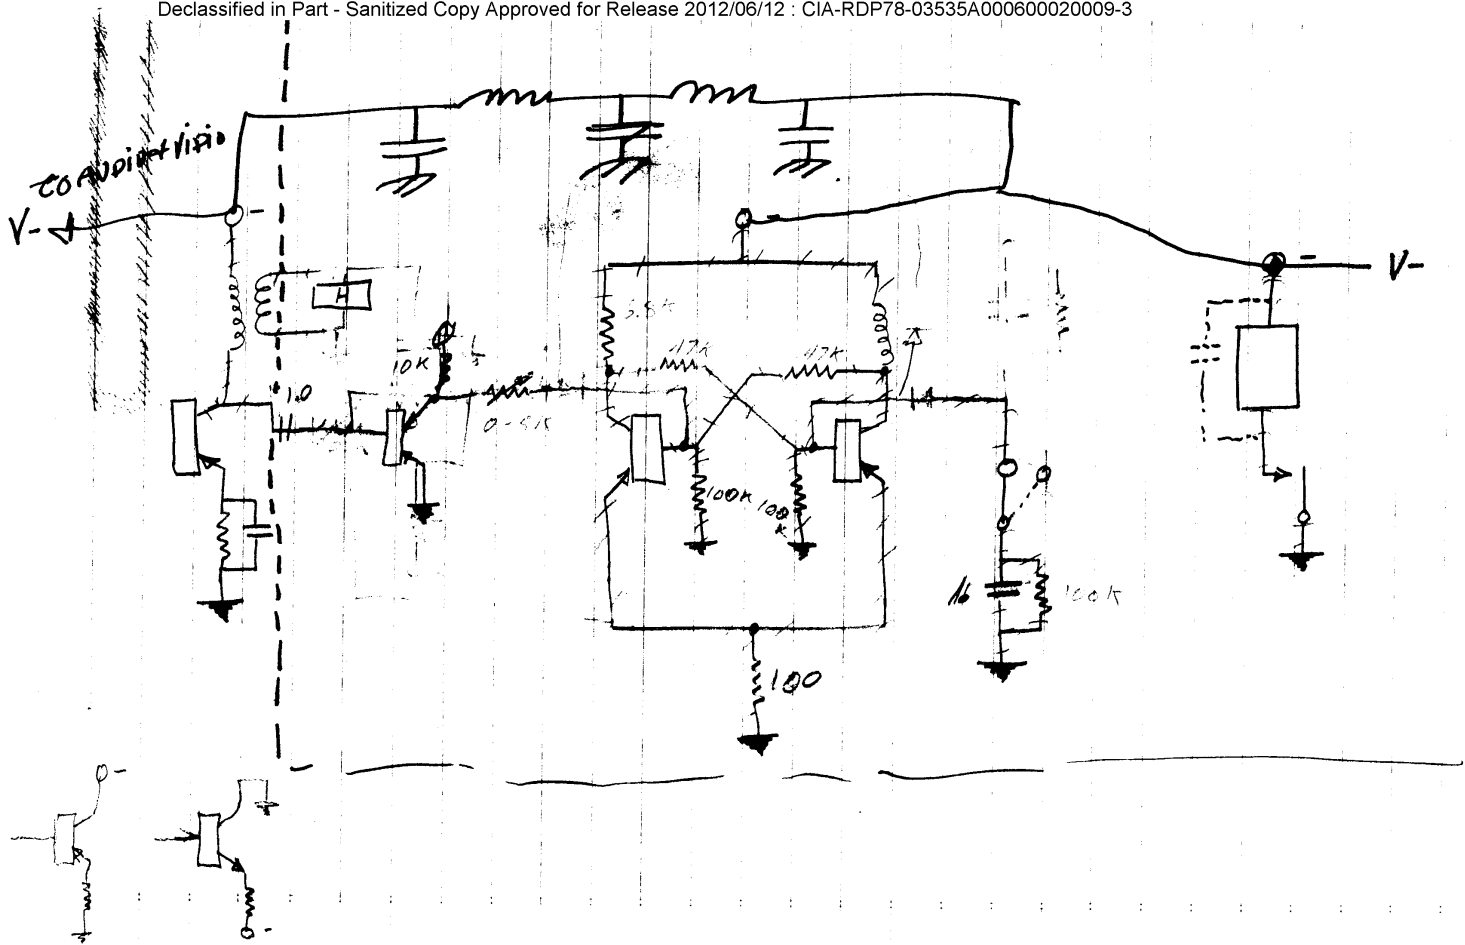 Declassified in Part - Sanitized Copy Approved for Release 2012/06/12 : CIA-RDP78-03535A000600020009-3
V-
-
-
-
V-
10K
47K
47K
1.0
100K
100
K
100K
100
-
-